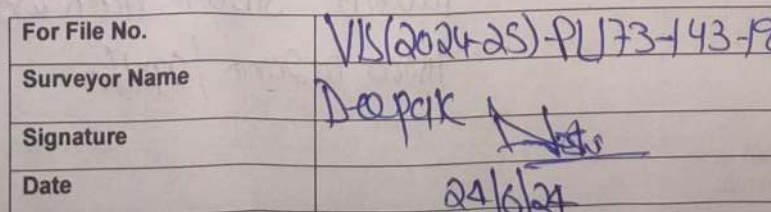 For File No. VIS(2024-25)-PL173-143-19
Surveyor Name Deepak
Signature
Date 24/6/24